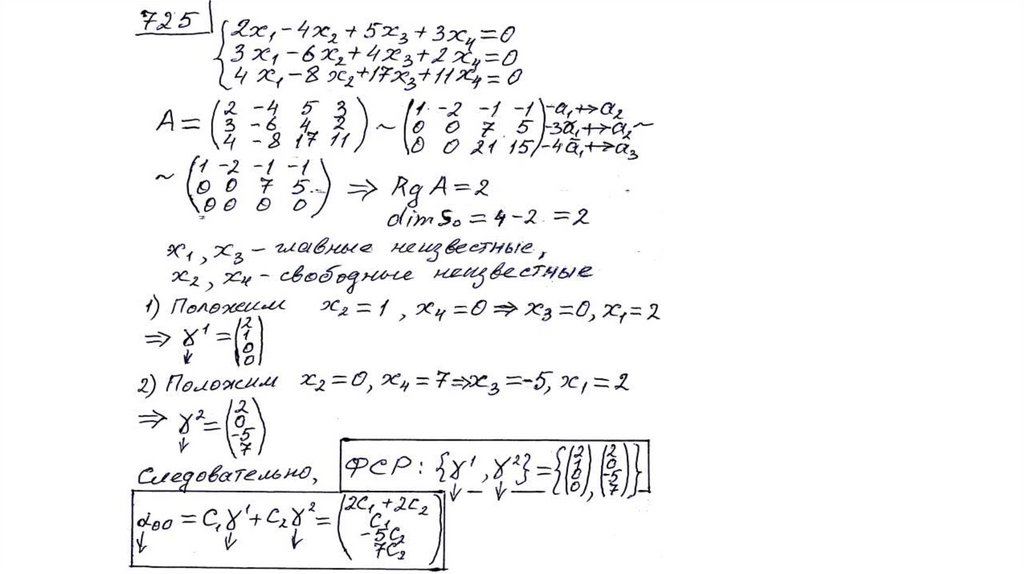 725
2x₁ - 4x₂ + 5x₃ + 3x₄ = 0
3x₁ - 6x₂ + 4x₃ + 2x₄ = 0
4x₁ - 8x₂ + 17x₃ + 11x₄ = 0
A = (2 -4 5 3; 3 -6 4 2; 4 -8 17 11) ~ (1 -2 -1 -1; 0 0 7 5; 0 0 21 15) -a₁+→a₂; -3a₁+→a₂; -4a₁+→a₃ ~
~ (1 -2 -1 -1; 0 0 7 5; 0 0 0 0) ⇒ Rg A = 2
dim S₀ = 4-2 = 2
x₁, x₃ - главные неизвестные,
x₂, x₄ - свободные неизвестные
1) Положим x₂ = 1, x₄ = 0 ⇒ x₃ = 0, x₁ = 2
⇒ γ¹ = (2; 1; 0; 0)
2) Положим x₂ = 0, x₄ = 7 ⇒ x₃ = -5, x₁ = 2
⇒ γ² = (2; 0; -5; 7)
Следовательно, ФСР: {γ¹, γ²} = {(2; 1; 0; 0), (2; 0; -5; 7)}
α₀₀ = C₁γ¹ + C₂γ² = (2C₁ + 2C₂; C₁; -5C₂; 7C₂)